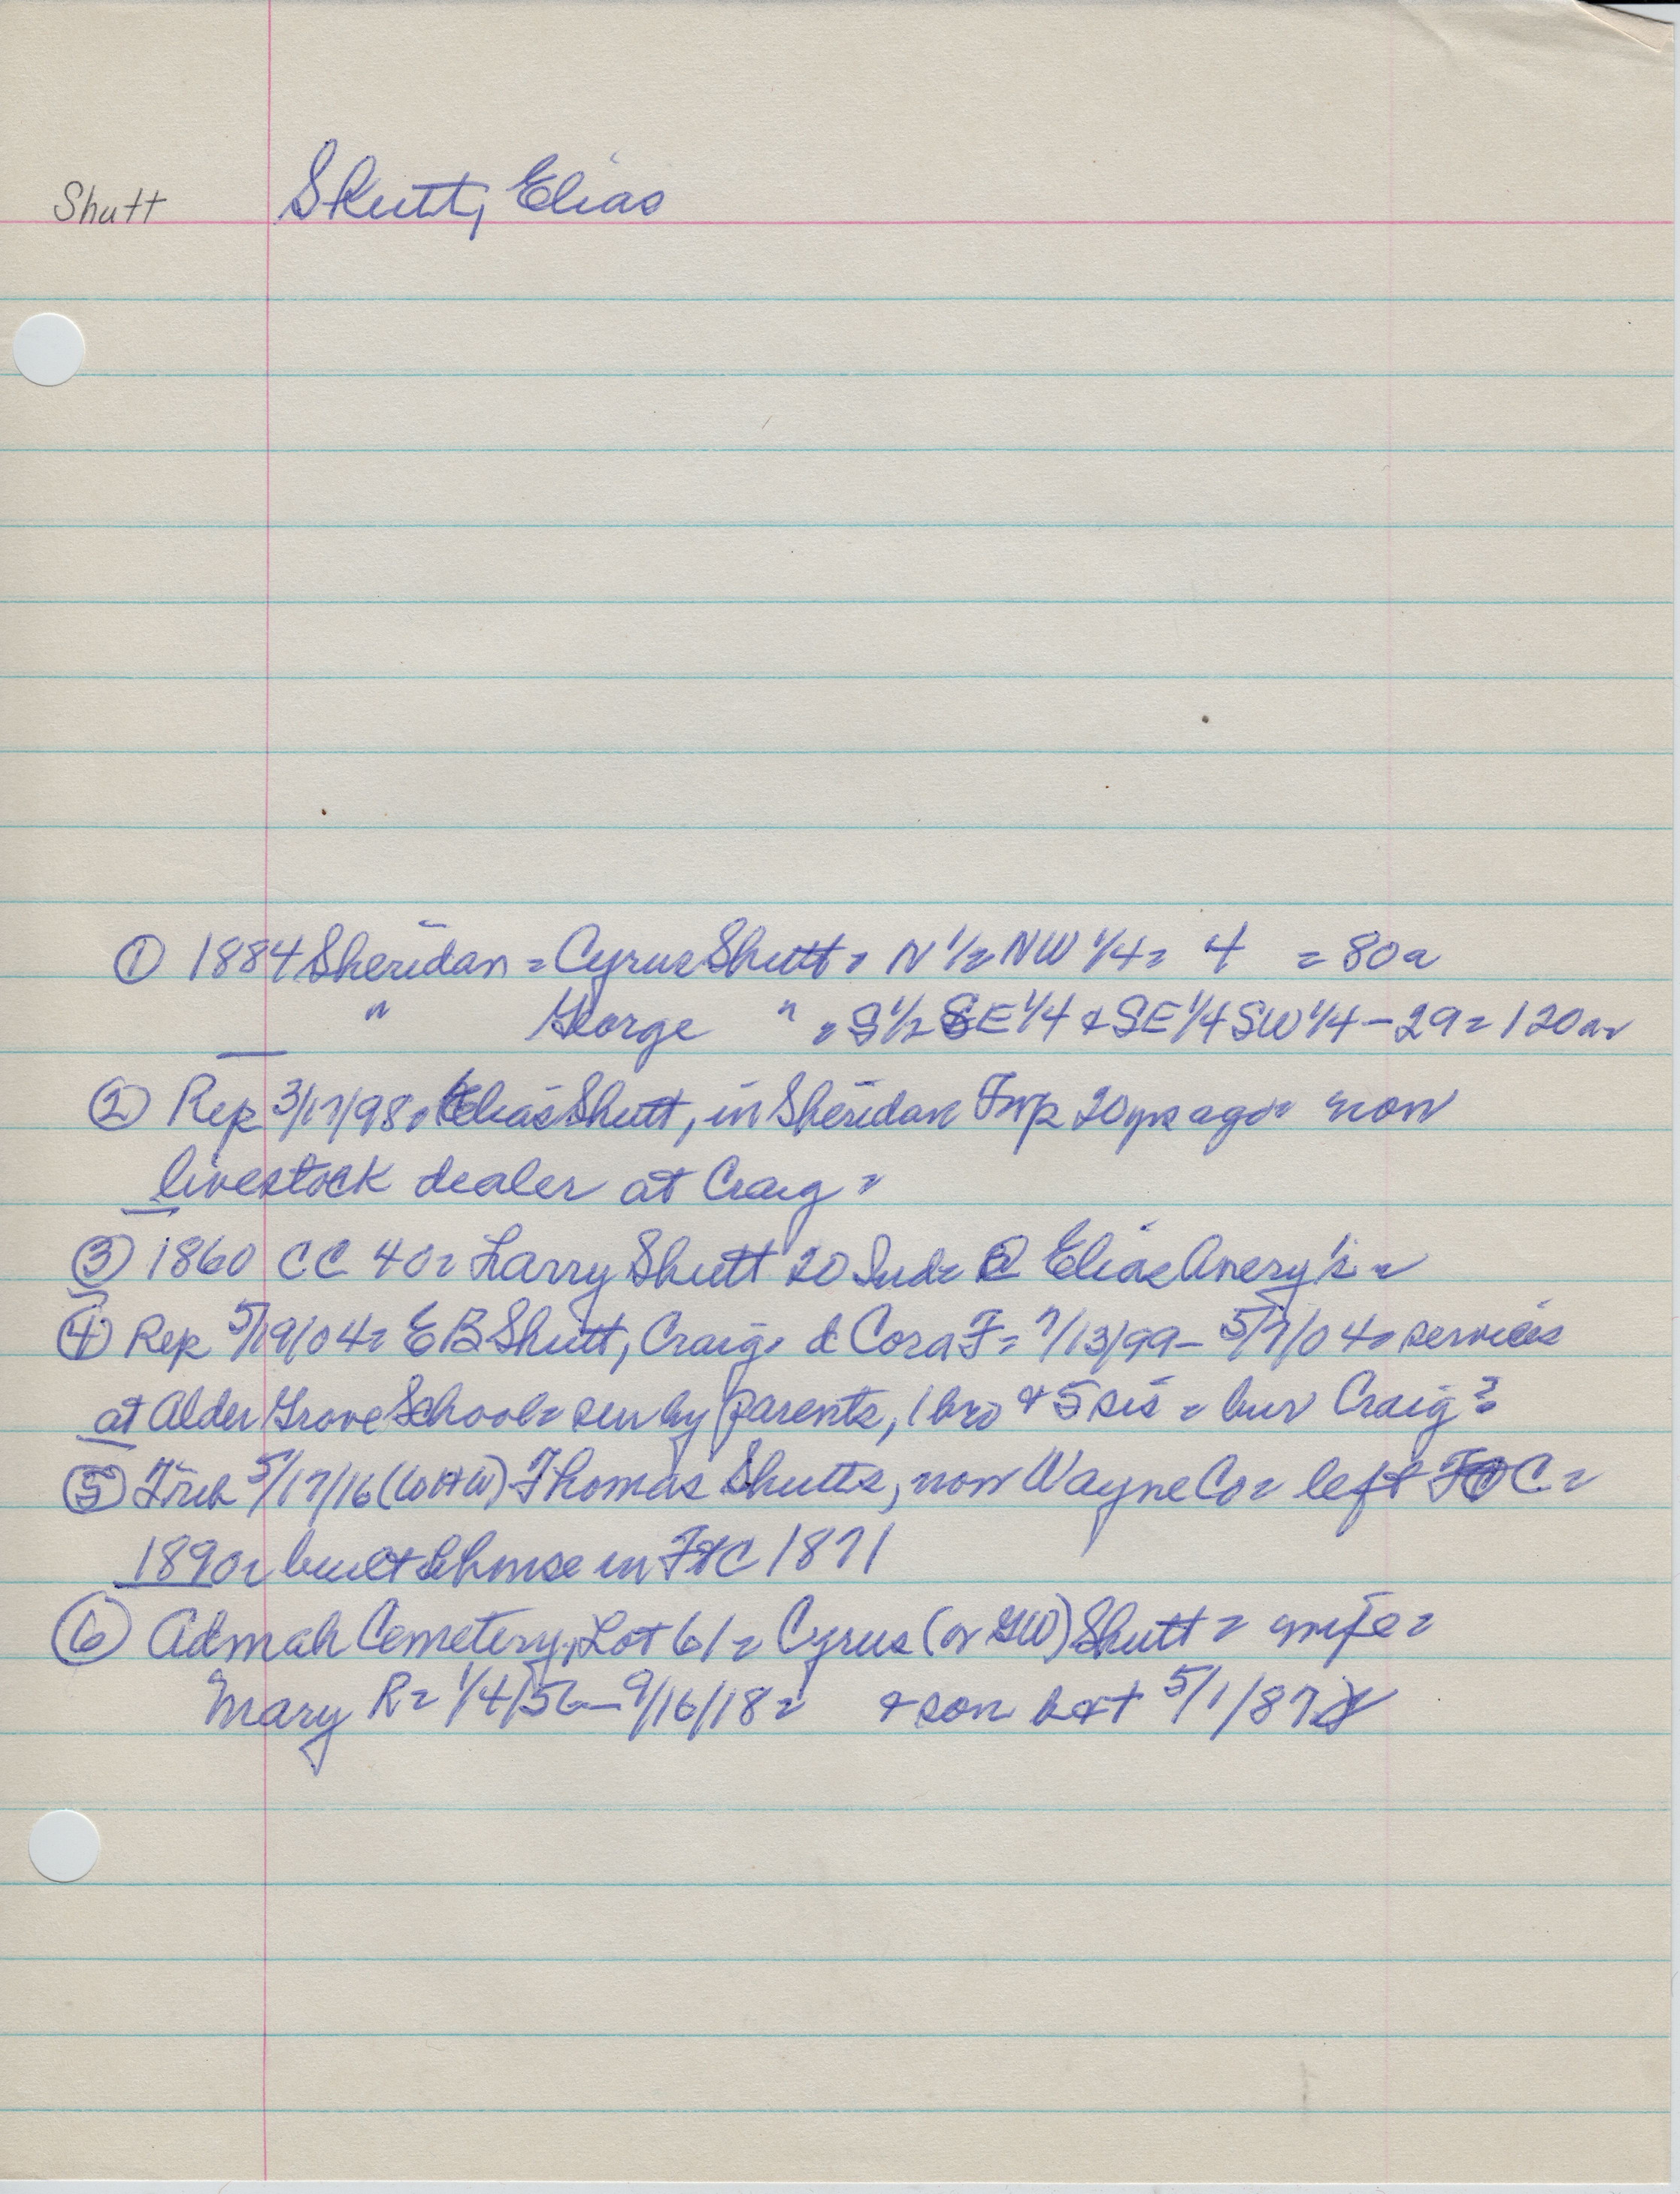 Shutt Shutt, Elias
① 1884 Sheridan = Cyrus Shutt = N 1/2 NW 1/4 = 4 = 80a
" George " = S 1/2 SE 1/4 & SE 1/4 SW 1/4 - 29 = 120a
② Rep 3/17/98 = Elias Shutt, in Sheridan Twp 20 yrs ago = now
livestock dealer at Craig =
③ 1860 CC 40 = Larry Shutt 20 Ind = @ Elias Avery's =
④ Rep 5/19/04 = E B Shutt, Craig = d Cora F = 7/13/99 - 5/7/04 = services
at Alder Grove School = sur by parents, 1 bro & 5 sis = bur Craig?
⑤ Trib 5/17/16 (WHW) Thomas Shutts, now Wayne Co = left Ft C =
1890 = built Schouse in Ft C 1871
⑥ Admah Cemetery, Lot 61 = Cyrus (or GW) Shutt = wife =
Mary R = 1/4/56 - 9/16/18 = & son b & d 5/1/87